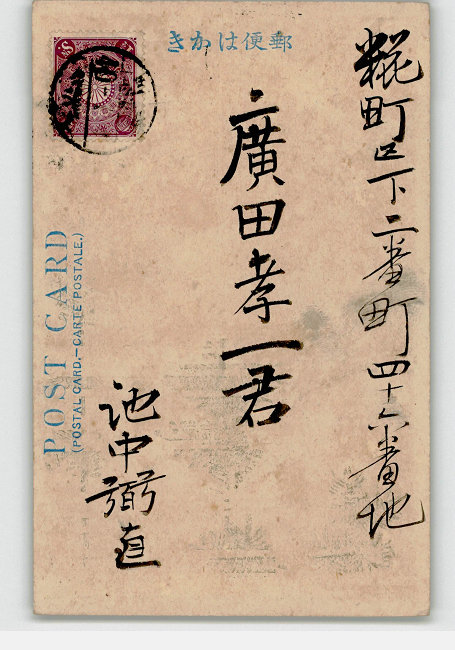 郵便はかき
糀町区下二番町四十六番地
廣田孝一君
池中弼直
POST CARD
(POSTAL CARD.—CARTE POSTALE.)